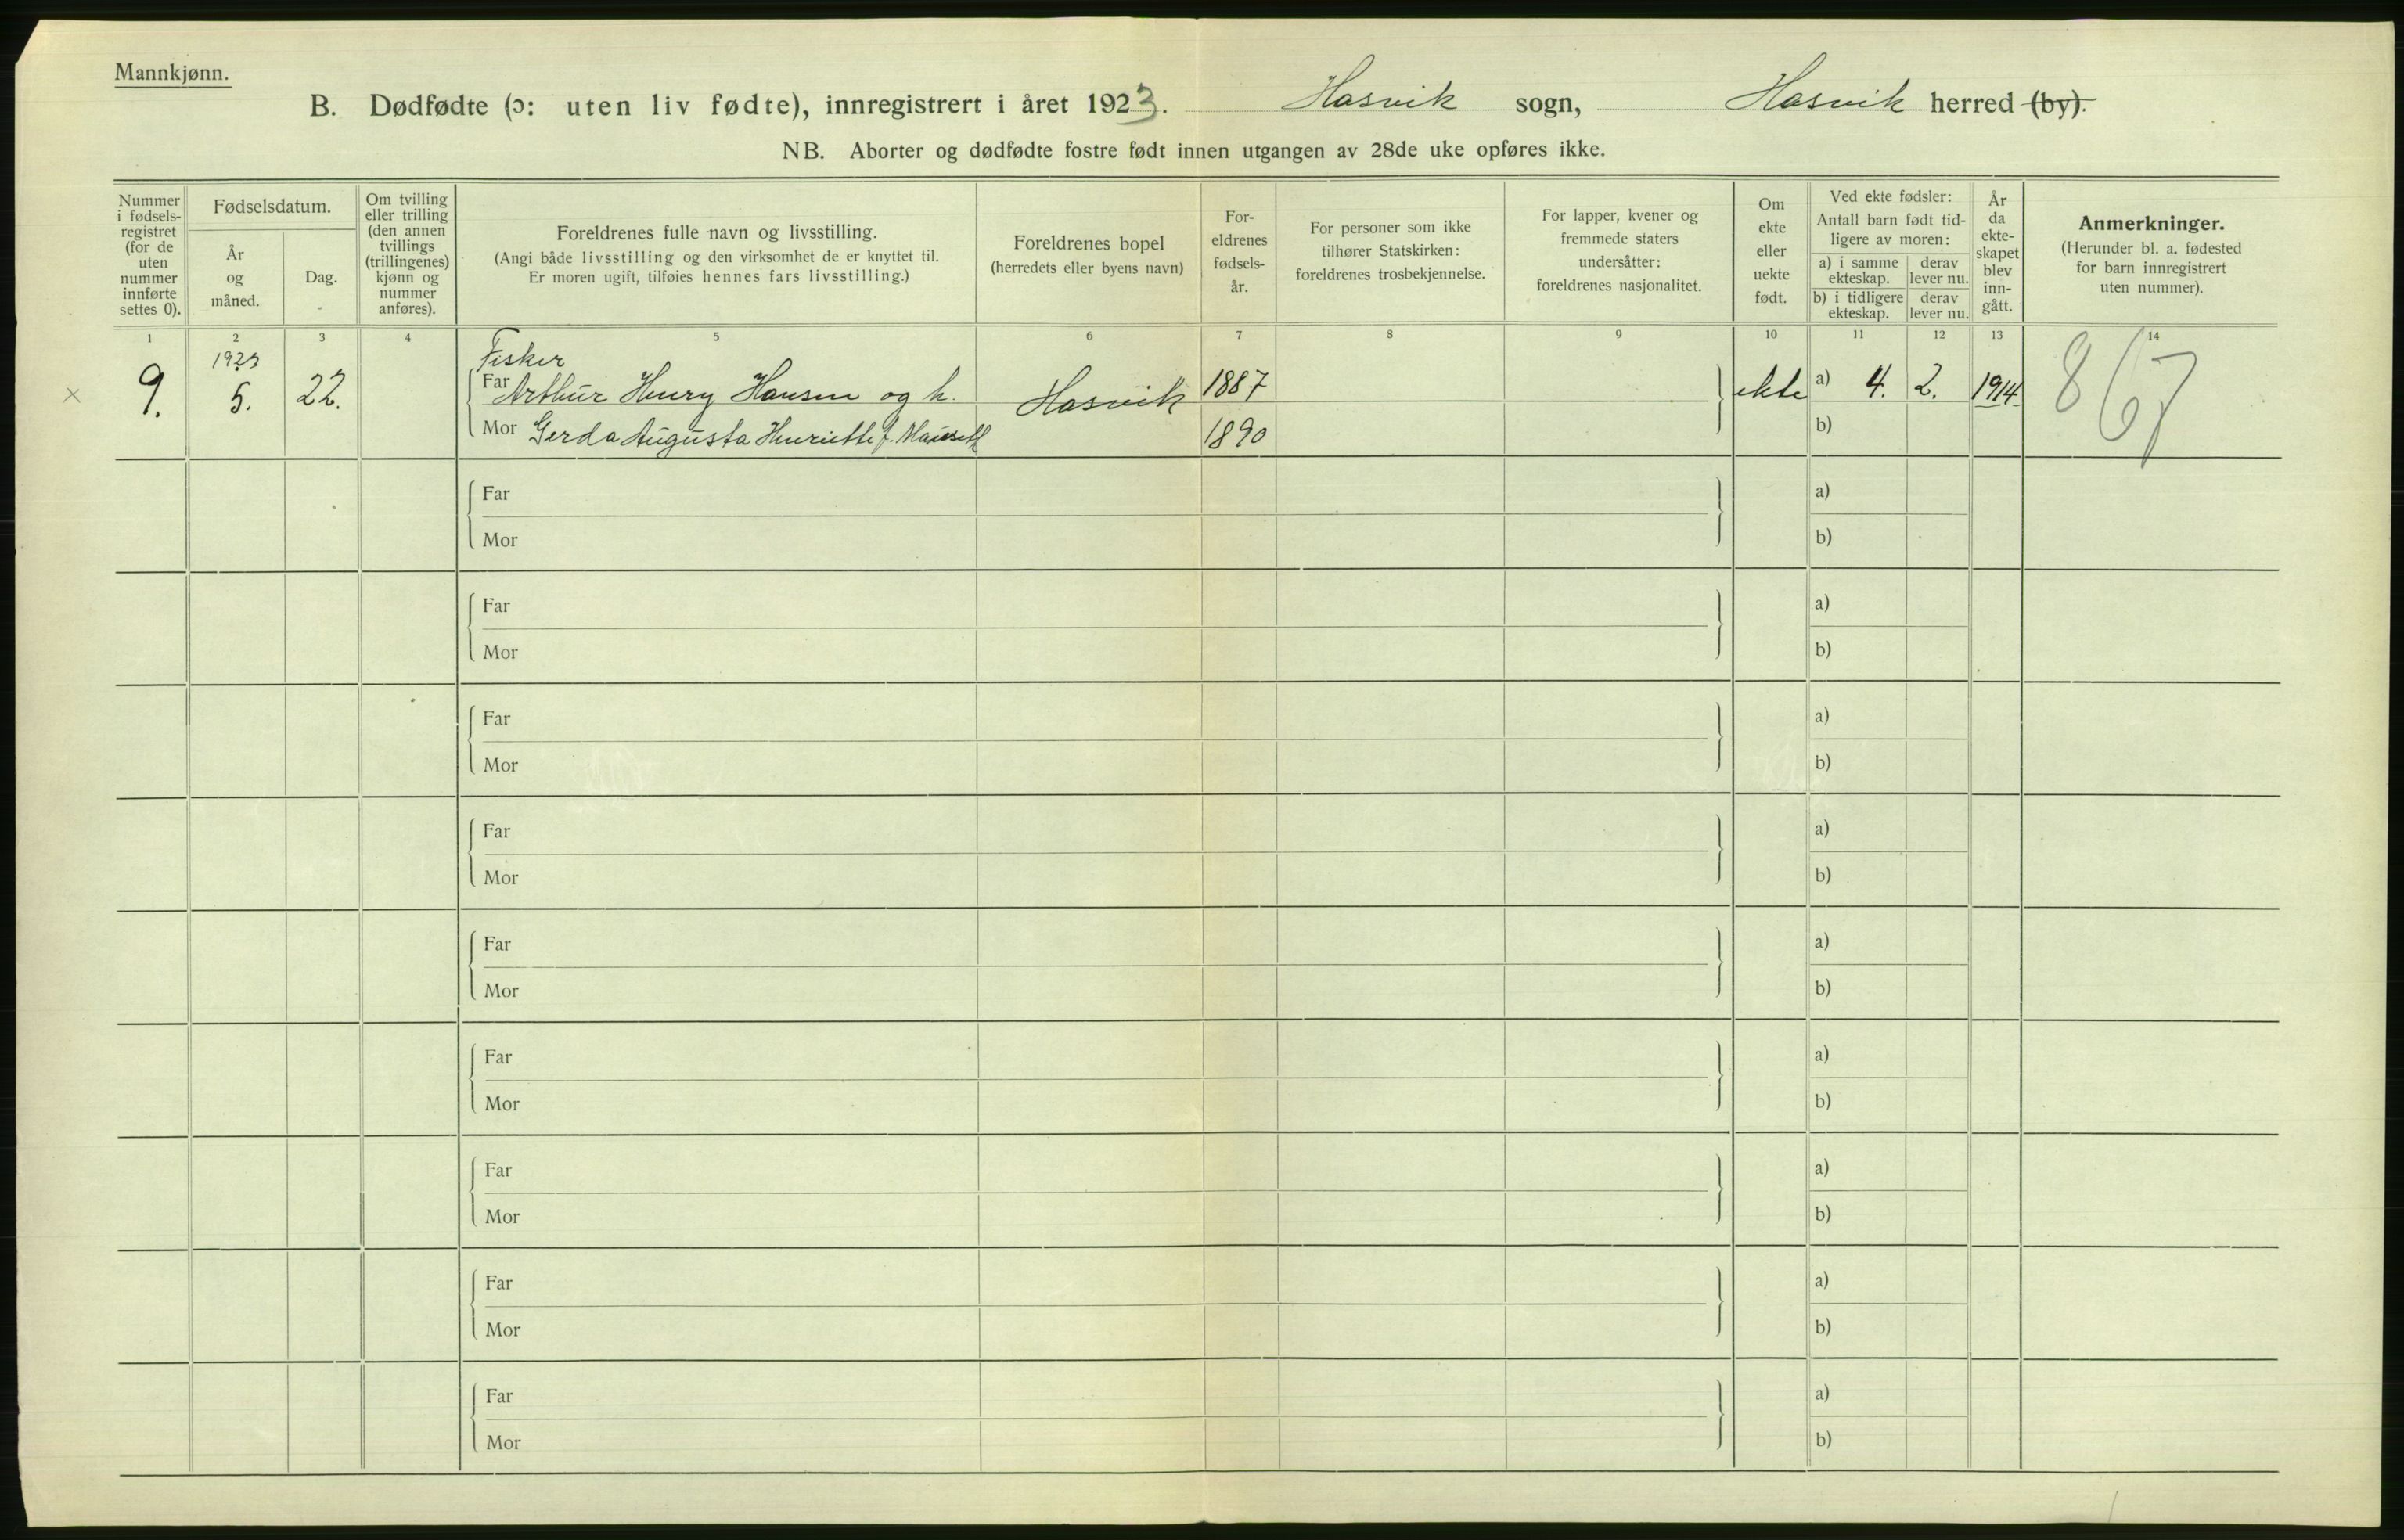 Mannkjønn.
B. Dødfødte (ɔ: uten liv fødte), innregistrert i året 1923. Hasvik sogn, Hasvik herred (by).
NB. Aborter og dødfødte fostre født innen utgangen av 28de uke opføres ikke.
Nummer i fødsels- registret (for de uten nummer innførte settes 0).
Fødselsdatum.
År og måned.
Dag.
Om tvilling eller trilling (den annen tvillings (trillingenes) kjønn og nummer anføres).
Foreldrenes fulle navn og livsstilling.
(Angi både livsstilling og den virksomhet de er knyttet til.
Er moren ugift, tilføies hennes fars livsstilling.)
Foreldrenes bopel
(herredets eller byens navn)
For- eldrenes fødsels- år.
For personer som ikke tilhører Statskirken: foreldrenes trosbekjennelse.
For lapper, kvener og fremmede staters undersåtter: foreldrenes nasjonalitet.
Om ekte eller uekte født.
Ved ekte fødsler:
Antall barn født tid- ligere av moren:
a) i samme ekteskap.
derav lever nu.
b) i tidligere ekteskap.
derav lever nu.
År da ekte- skapet blev inn- gått.
Anmerkninger.
(Herunder bl. a. fødested for barn innregistrert uten nummer).
1 2 3 4 5 6 7 8 9 10 11 12 13 14
1923 Fisker
× 9. 5. 22. Far Arthur Henry Hansen og h. Hasvik 1887 ekte a) 4. 2. 1914 867
Mor Gerda Augusta Henriette f. 1890 b)
Far a)
Mor b)
Far a)
Mor b)
Far a)
Mor b)
Far a)
Mor b)
Far a)
Mor b)
Far a)
Mor b)
Far a)
Mor b)
Far a)
Mor b)
Far a)
Mor b)